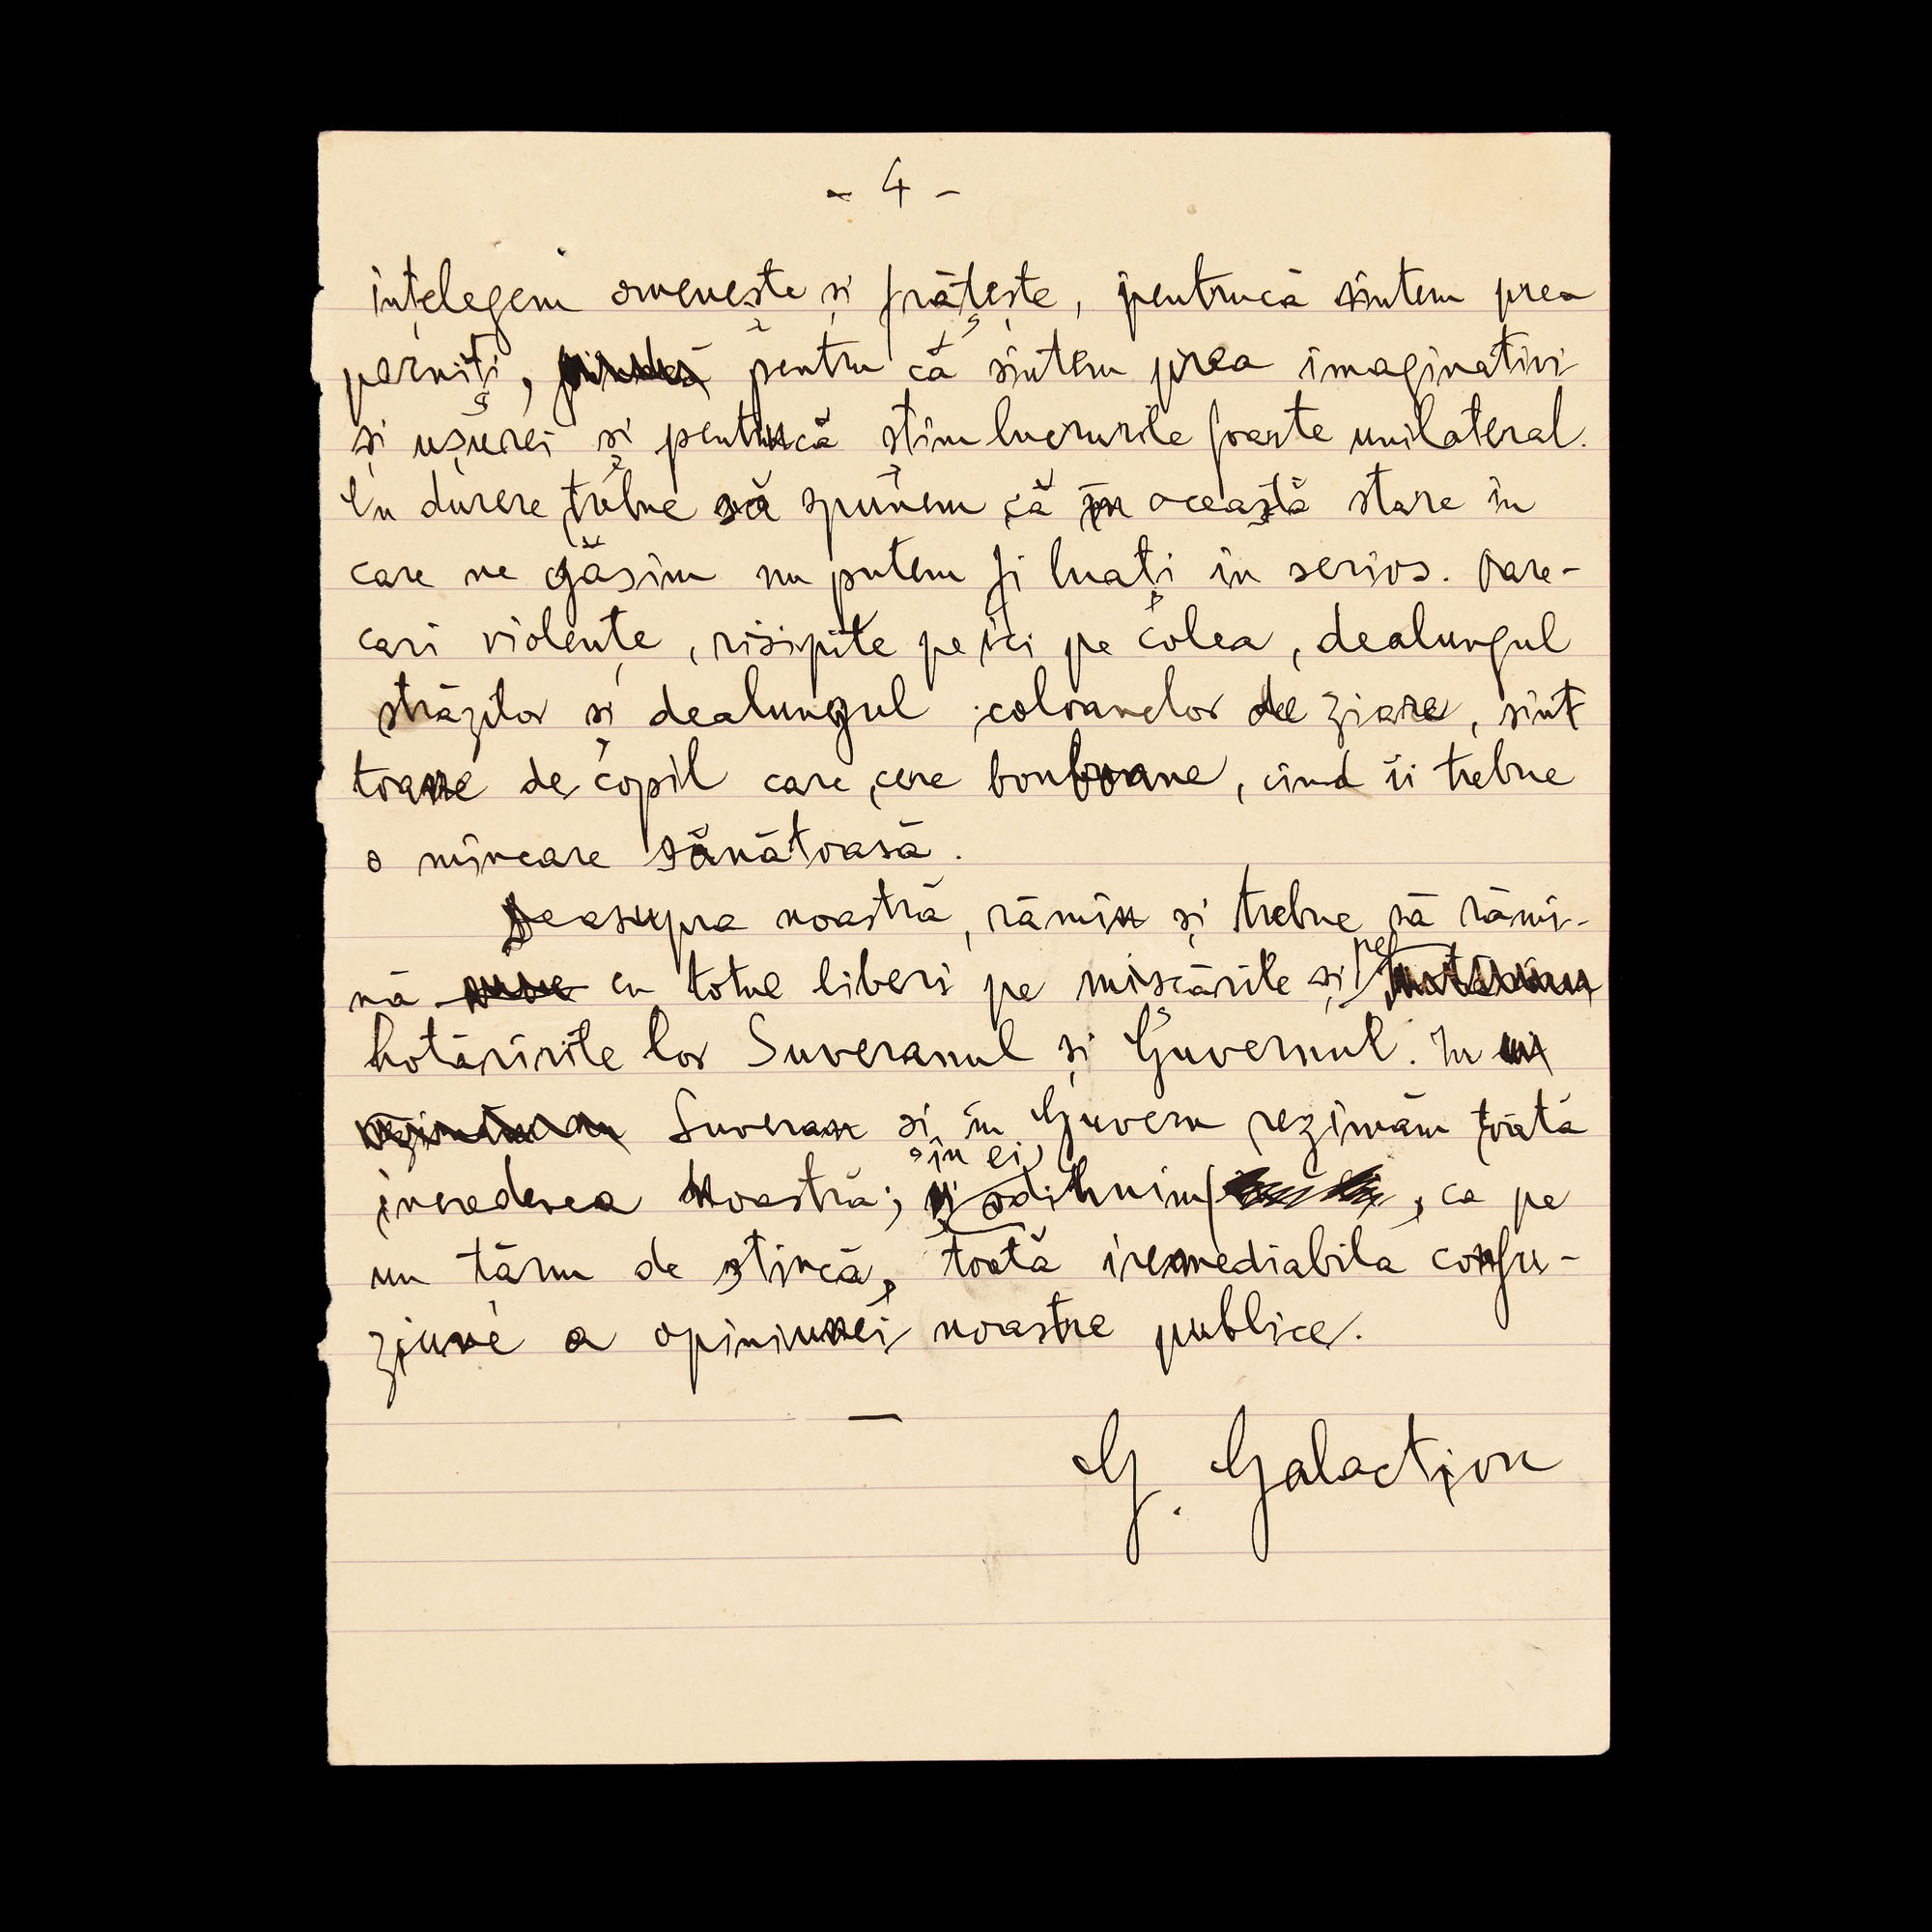 - 4 -
înțelegem omenește și frățește, pentrucă sîntem prea
porniți, pentru că sîntem prea imaginativi
și ușurei și pentrucă știm lucrurile foarte unilateral.
Cu durere trebue să spunem că în această stare în
care ne găsim nu putem fi luați în serios. Oare-
cari violențe, risipite pe ici pe colea, dealungul
străzilor și dealungul coloanelor de ziare, sînt
toane de copil care cere bonboane, cînd îi trebue
o mîncare sănătoasă.
Deasupra noastră, rămîn și trebue să rămî-
nă cu totul liberi pe mișcările și pe
hotărîrile lor Suveranul și Guvernul. In
Suveran și în Guvern rezimăm toată
încrederea noastră; în ei odihnim, ca pe
un țărm de stîncă, toată iremediabila confu-
ziune a opiniunei noastre publice.
—
G. Galaction